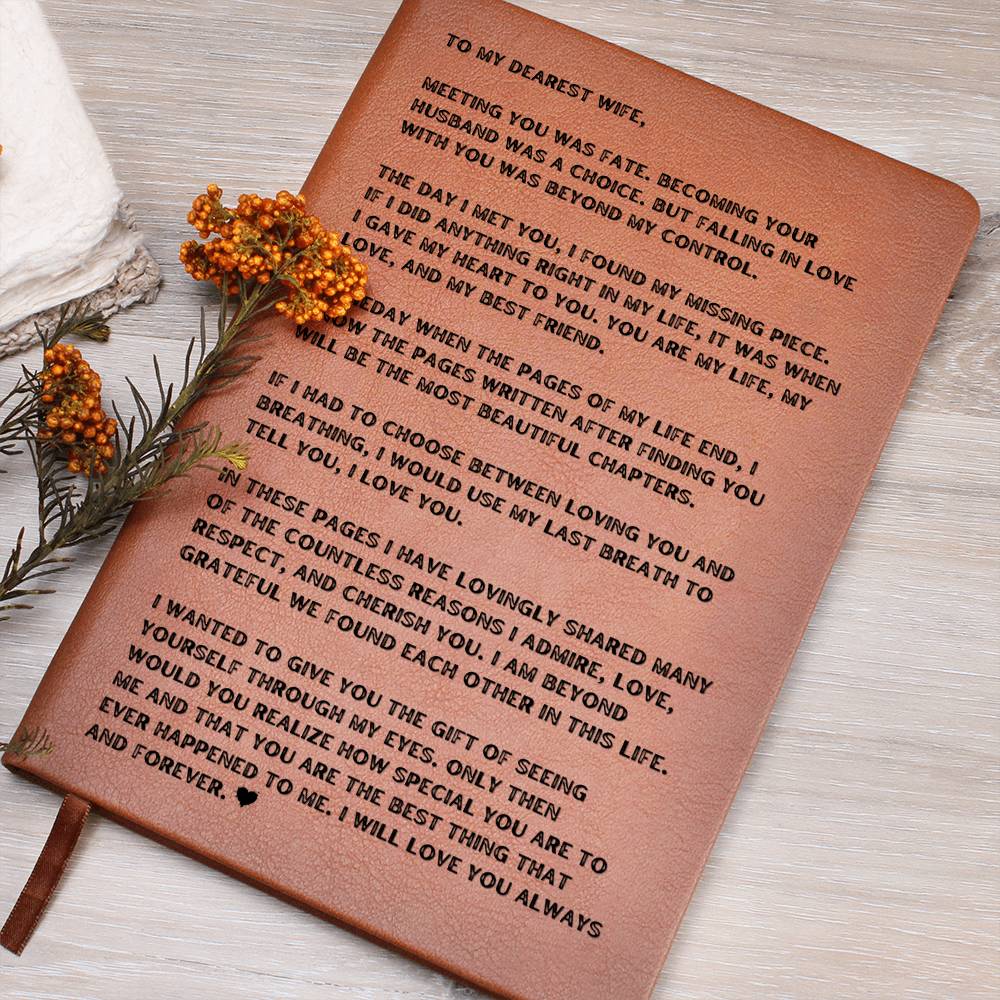 TO MY DEAREST WIFE,
MEETING YOU WAS FATE. BECOMING YOUR
HUSBAND WAS A CHOICE. BUT FALLING IN LOVE
WITH YOU WAS BEYOND MY CONTROL.
THE DAY I MET YOU, I FOUND MY MISSING PIECE.
IF I DID ANYTHING RIGHT IN MY LIFE, IT WAS WHEN
I GAVE MY HEART TO YOU. YOU ARE MY LIFE, MY
LOVE, AND MY BEST FRIEND.
WHEN THE PAGES OF MY LIFE END, I
THE PAGES WRITTEN AFTER FINDING YOU
WILL BE THE MOST BEAUTIFUL CHAPTERS.
IF I HAD TO CHOOSE BETWEEN LOVING YOU AND
BREATHING, I WOULD USE MY LAST BREATH TO
TELL YOU, I LOVE YOU.
IN THESE PAGES I HAVE LOVINGLY SHARED MANY
OF THE COUNTLESS REASONS I ADMIRE, LOVE,
RESPECT, AND CHERISH YOU. I AM BEYOND
GRATEFUL WE FOUND EACH OTHER IN THIS LIFE.
I WANTED TO GIVE YOU THE GIFT OF SEEING
YOURSELF THROUGH MY EYES. ONLY THEN
WOULD YOU REALIZE HOW SPECIAL YOU ARE TO
ME AND THAT YOU ARE THE BEST THING THAT
EVER HAPPENED TO ME. I WILL LOVE YOU ALWAYS
AND FOREVER. ♥